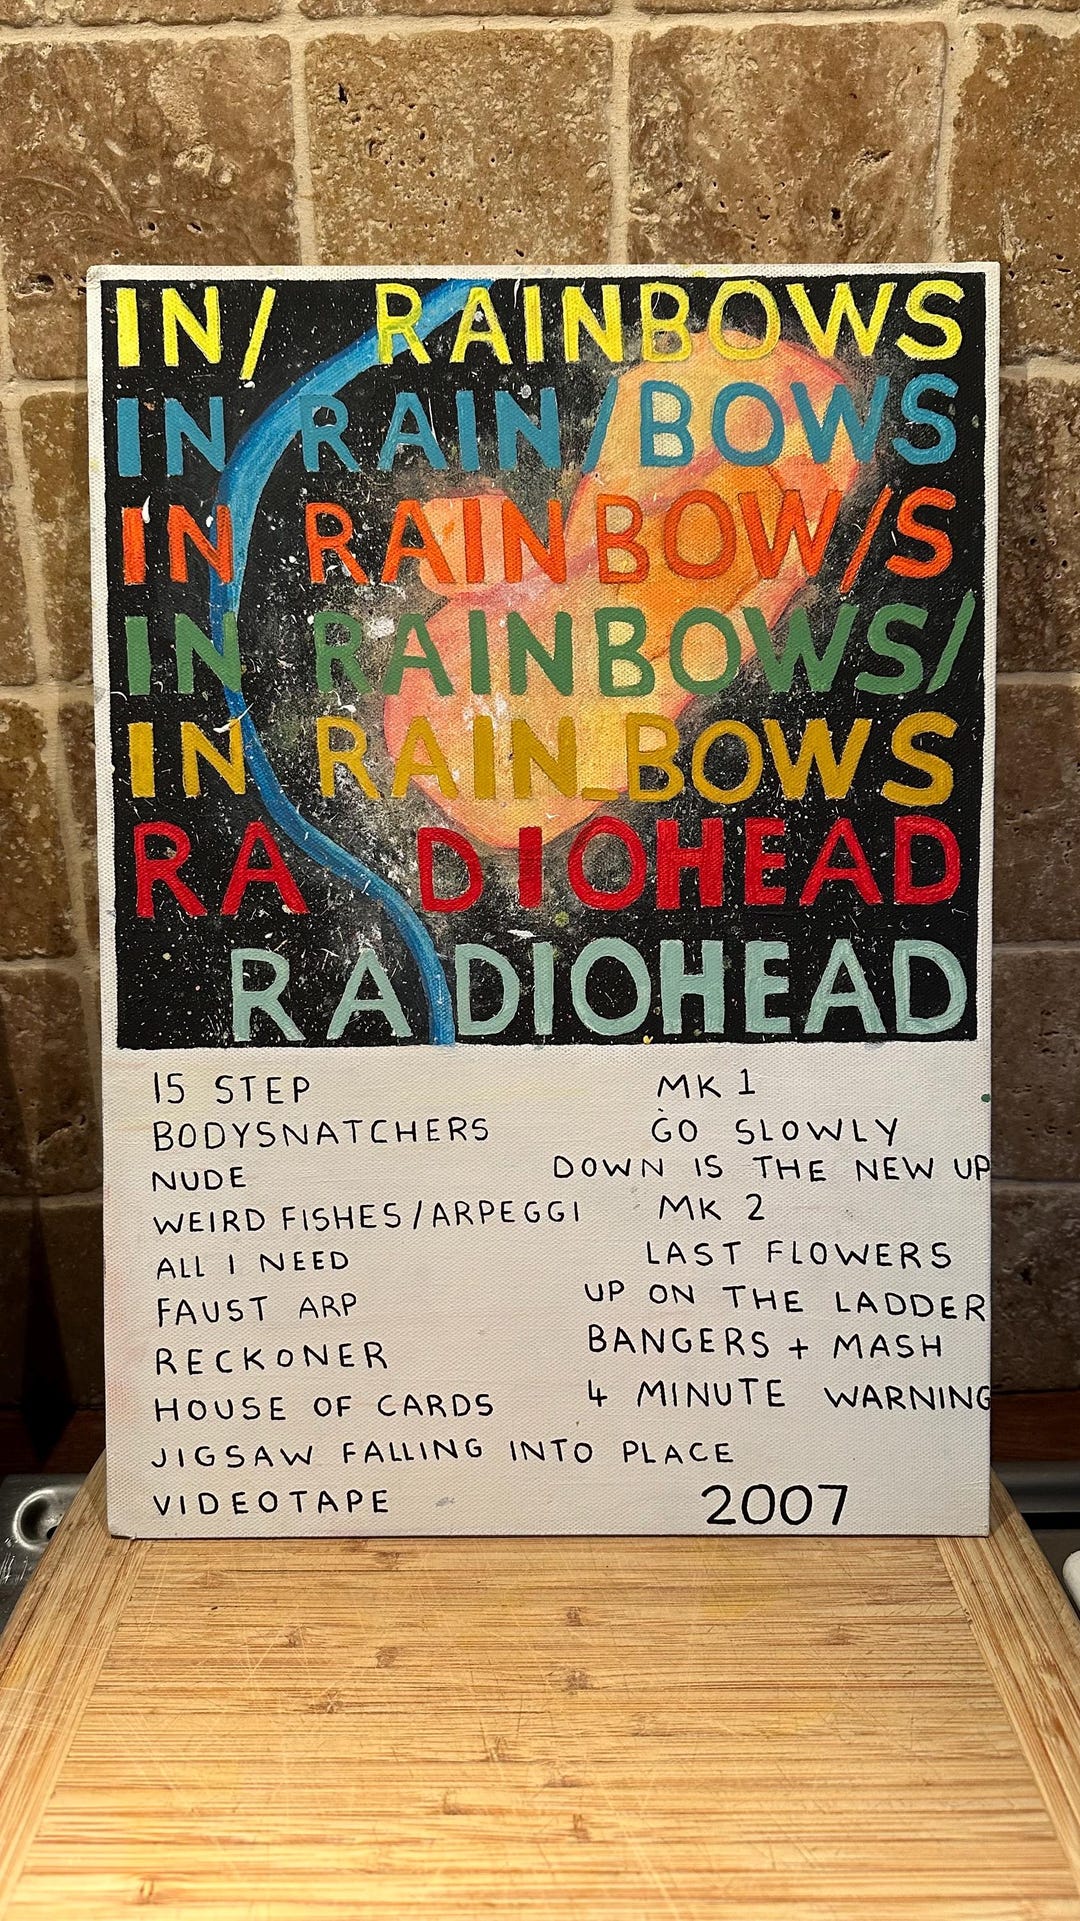 IN/ RAINBOWS
IN RAIN/BOWS
IN RAINBOW/S
IN RAINBOWS/
IN RAIN_BOWS
RA DIOHEAD
RADIOHEAD
15 STEP
BODYSNATCHERS
NUDE
WEIRD FISHES/ARPEGGI
ALL I NEED
FAUST ARP
RECKONER
HOUSE OF CARDS
JIGSAW FALLING INTO PLACE
VIDEOTAPE
MK 1
GO SLOWLY
DOWN IS THE NEW UP
MK 2
LAST FLOWERS
UP ON THE LADDER
BANGERS + MASH
4 MINUTE WARNING
2007